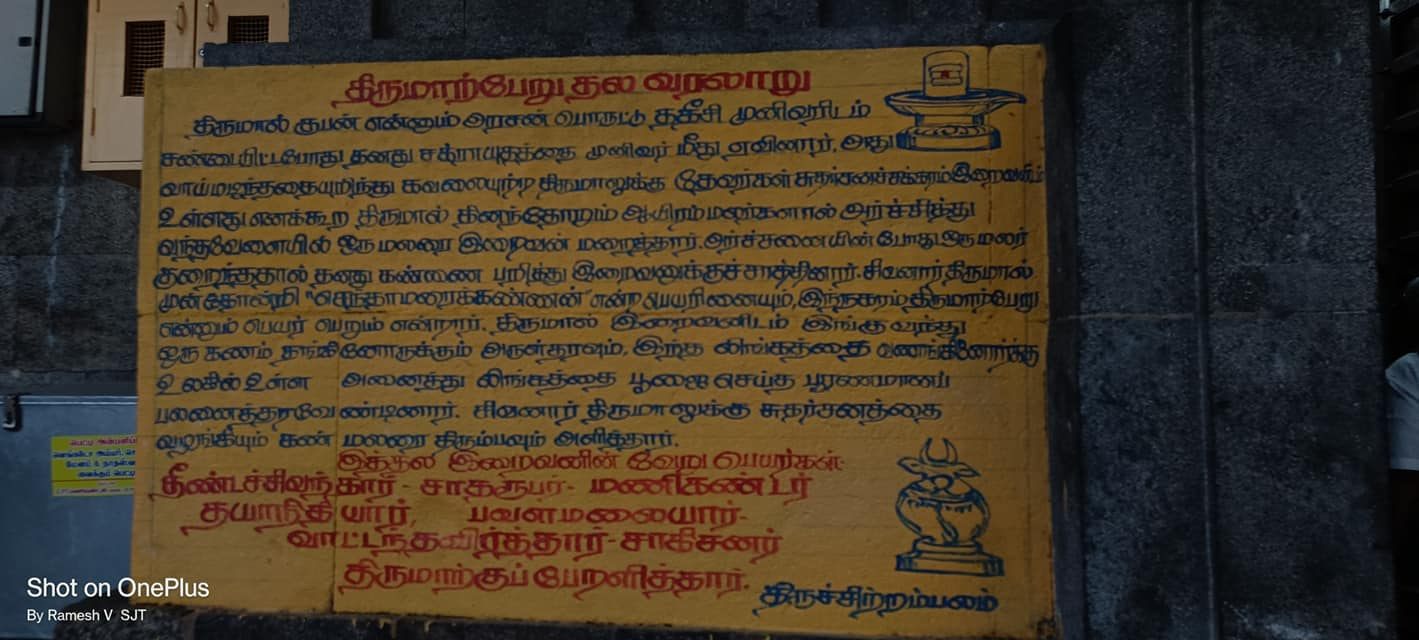 திருமாற்பேறு தல வரலாறு
திருமால் குபன் என்னும் அரசன் பொருட்டு ததீசி முனிவரிடம்
சண்டையிட்டபோது தனது சக்ராயுதத்தை முனிவர் மீது ஏவினார். அது
வாய்மடிந்ததையறிந்து கவலையுற்ற திருமாலுக்கு தேவர்கள் சுதர்சனச்சக்கரம் இறைவனிடம்
உள்ளது எனக்கூற திருமால் தினந்தோறும் ஆயிரம் மலர்களால் அர்ச்சித்து
வந்தவேளையில் ஒரு மலரை இறைவன் மறைத்தார். அர்ச்சனையின் போது ஒரு மலர்
குறைந்ததால் தனது கண்ணை பறித்து இறைவனுக்குச் சாத்தினார். சிவனார் திருமால்
முன் தோன்றி "செந்தாமரைக்கண்ணன்" என்ற பெயரினையும், இந்நகரம் திருமாற்பேறு
என்னும் பெயர் பெறும் என்றார். திருமால் இறைவனிடம் இங்கு வந்து
ஒரு கணம் தங்கினோருக்கும் அருள்தரவும், இந்த லிங்கத்தை வணங்கினோர்க்கு
உலகில் உள்ள அனைத்து லிங்கத்தை பூஜை செய்த பூரணமானப்
பலனைத்தரவேண்டினார். சிவனார் திருமாலுக்கு சுதர்சனத்தை
வழங்கியும் கண் மலரை திரும்பவும் அளித்தார்.
இத்தல இறைவனின் வேறு பெயர்கள்:
தீண்டச்சிவந்தார் - சாதரூபர் - மணிகண்டர்
தயாநிதியார், பவளமலையார்-
வாட்டந்தவிர்த்தார்-சாகிசனர்
திருமாற்குப் பேறளித்தார்.
திருச்சிற்றம்பலம்
Shot on OnePlus
By Ramesh V SJT